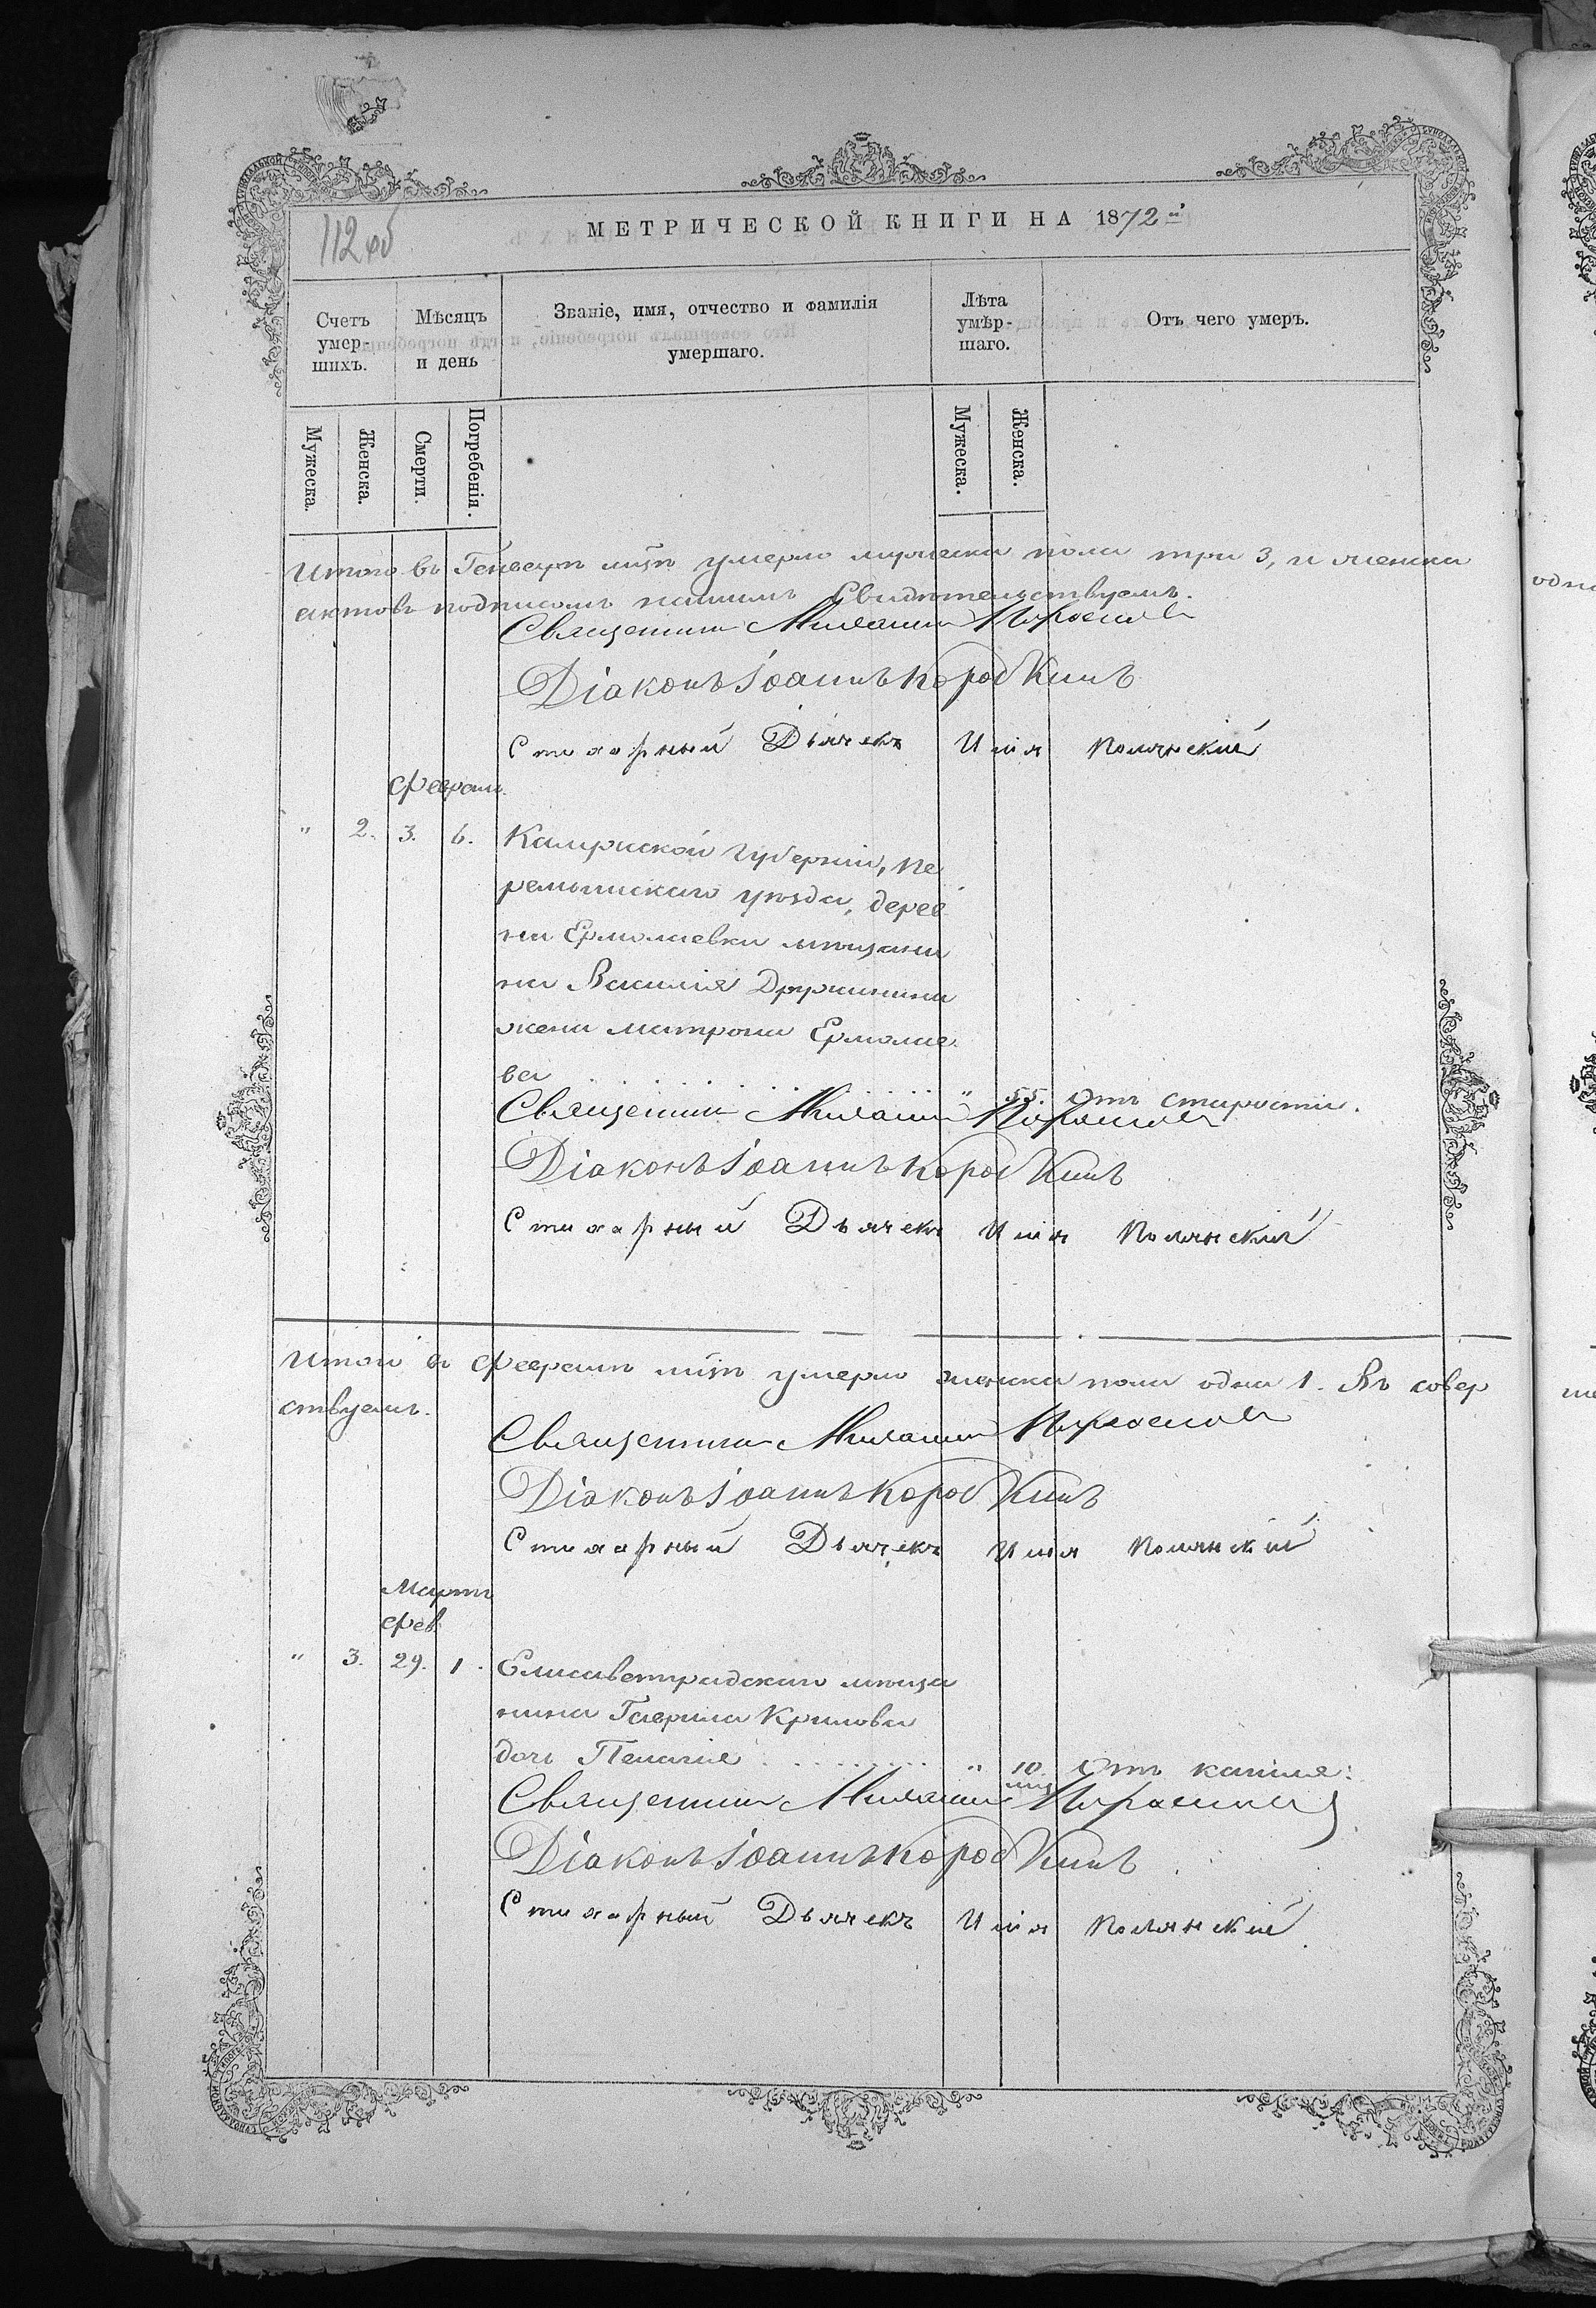 112 об
МЕТРИЧЕСКОЙ КНИГИ НА 1872 й
Счетъ умер-шихъ.
Мѣсяцъ и день
Званіе, имя, отчество и фамилія умершаго.
Лѣта умѣр-шаго.
Отъ чего умеръ.
Мужеска.
Женска.
Смерти.
Погребенія.
Мужеска.
Женска.
Итого въ Генварѣ умерло мужеска пола три 3, и женска
актовъ подписомъ нашимъ Свидѣтельствуемъ.
Священникъ Михаилъ
Діаконъ Іоаннъ Коробкинъ
Стихарный Дьячекъ Илія Полянскій
Февраль
" 2. 3. 6. Калужской Губерніи, Пе
ремышскаго уѣзда, дерев
ни Ермолаевки мѣщани
на Василія Дружинина
жена Матрона Ермолае
ва " 55. Отъ старости.
Священникъ Михаилъ
Діаконъ Іоаннъ Коробкинъ
Стихарный Дьячекъ Илія Полянскій
Итого въ Февралѣ умерло женска пола одна 1. Въ совер
ствуемъ.
Священникъ Михаилъ
Діаконъ Іоаннъ Коробкинъ
Стихарный Дьячекъ Илія Полянскій
Мартъ
Фев.
" 3. 29. 1. Елисаветградскаго мѣща
нина Гаврила Крилова
дочь Пелагія " 10. Отъ кашля.
Священникъ Михаилъ
Діаконъ Іоаннъ Коробкинъ
Стихарный Дьячекъ Илія Полянскій